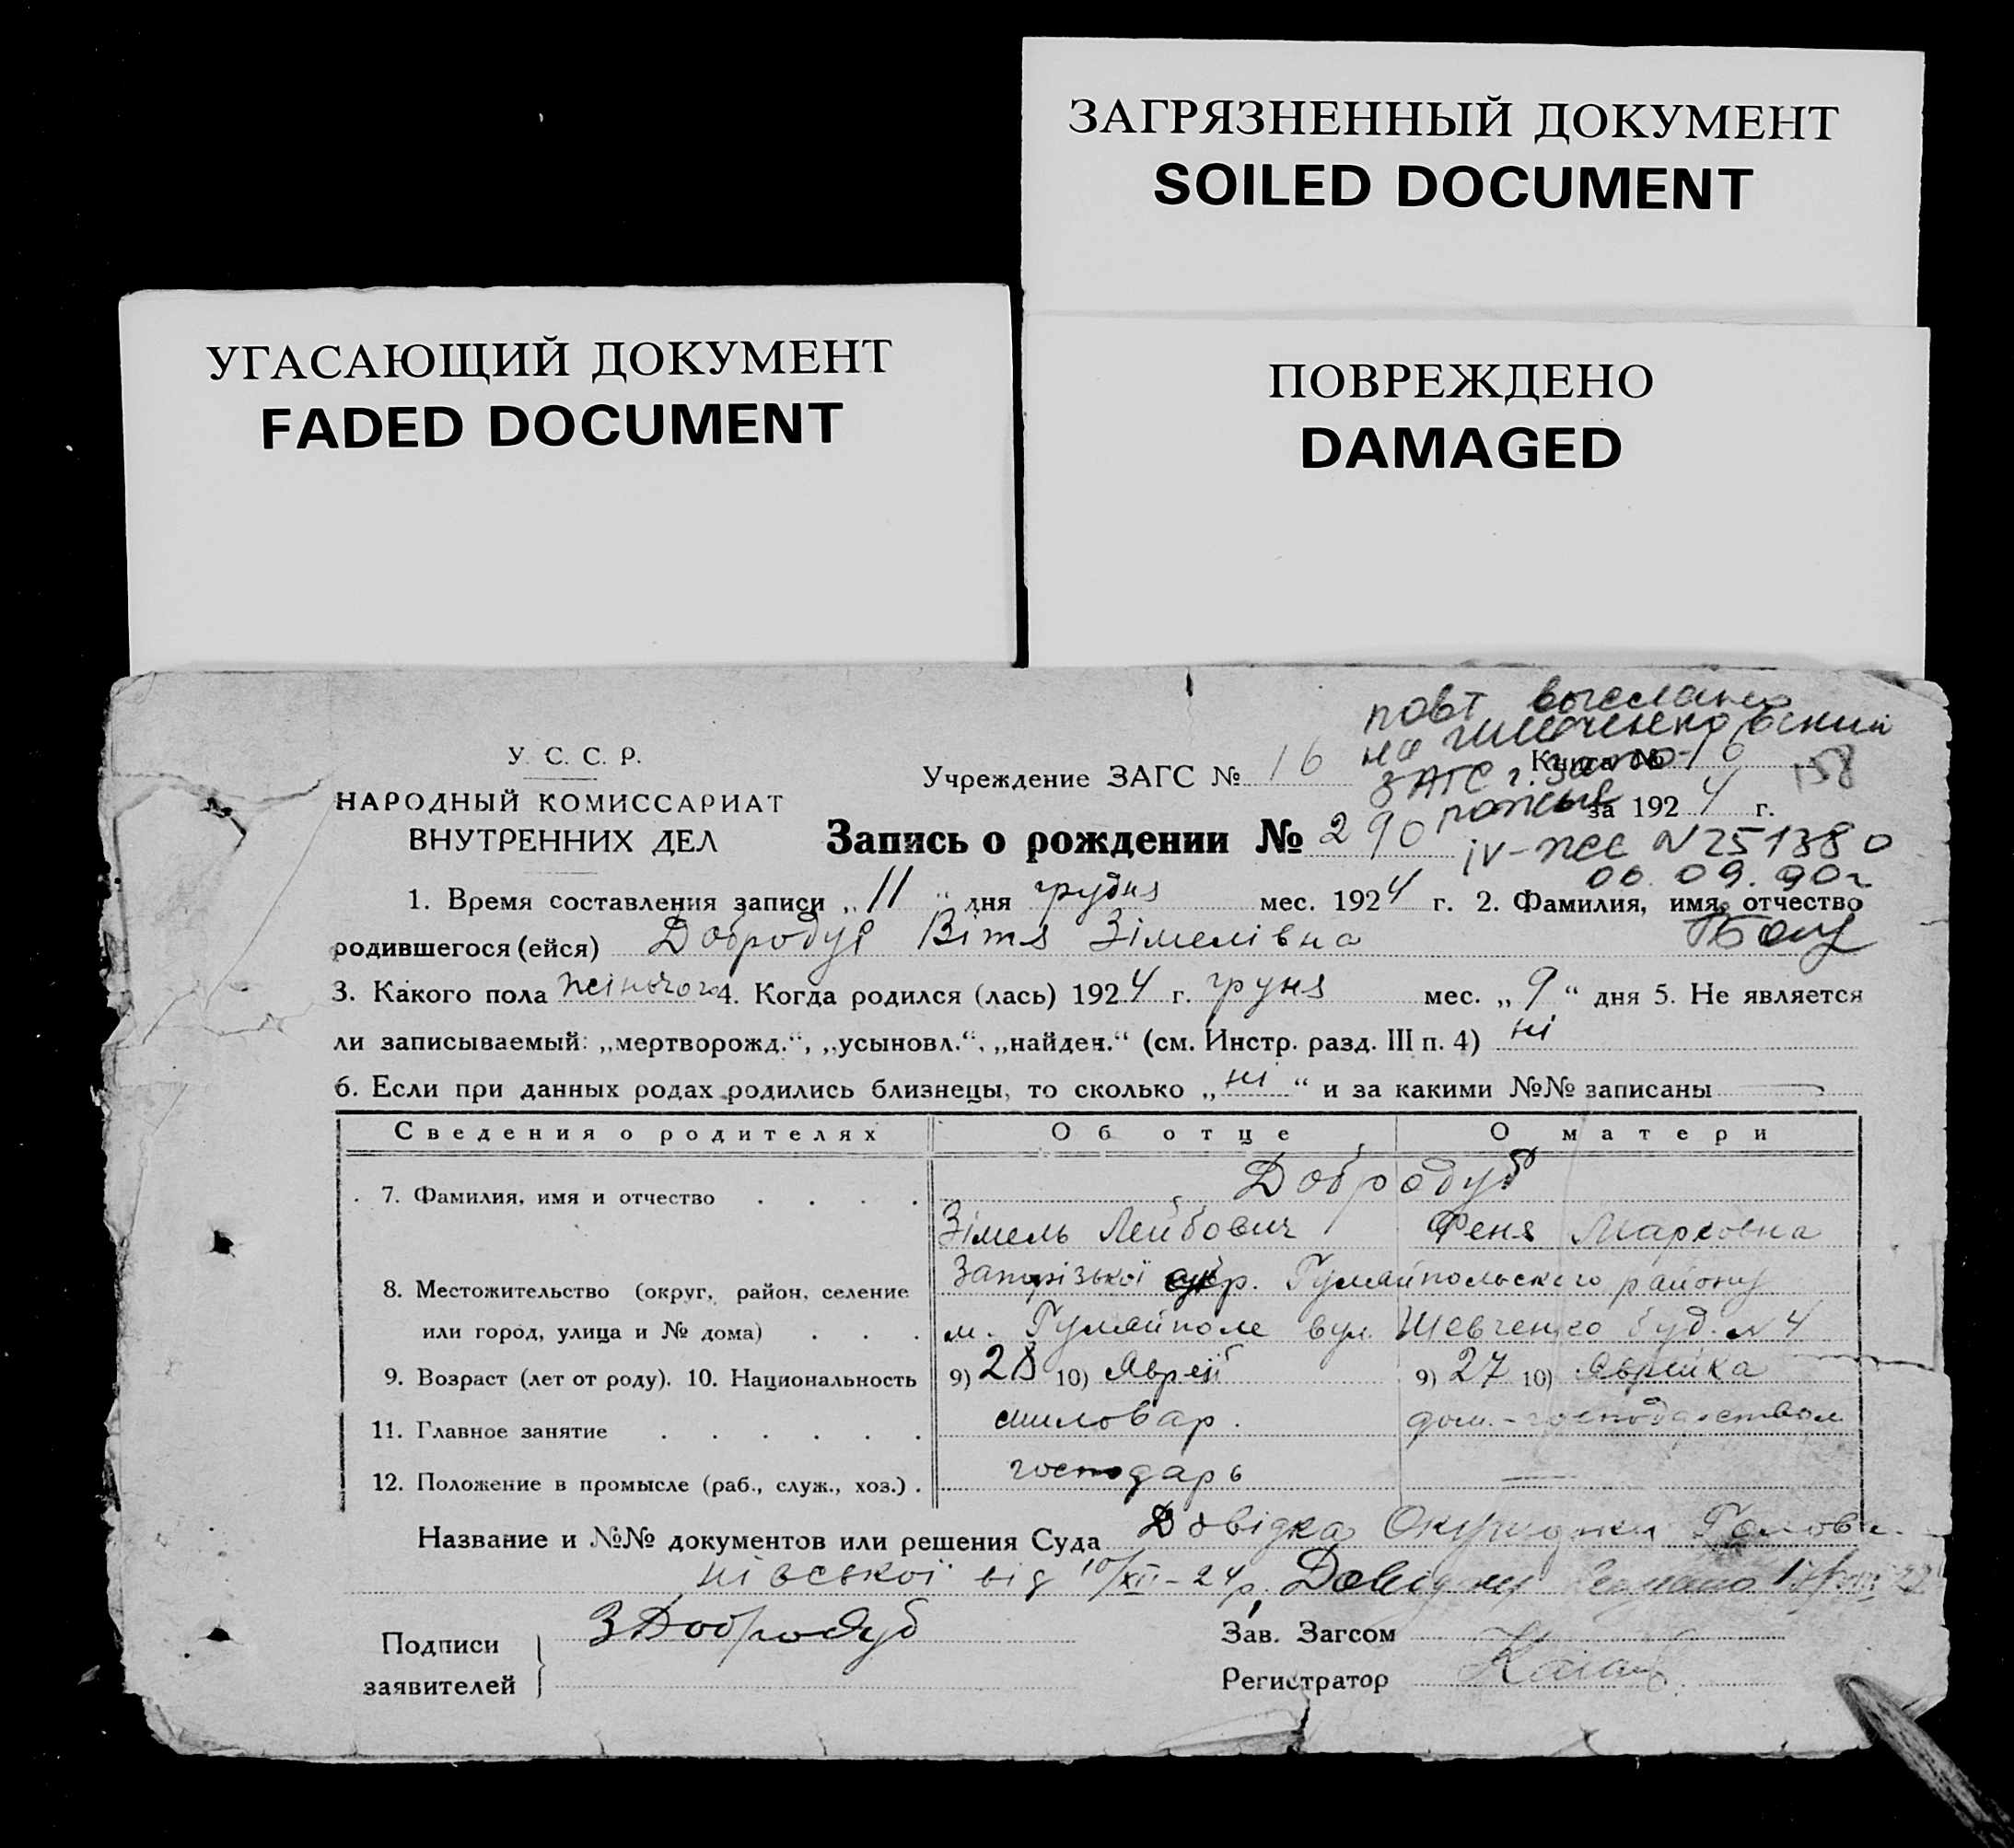 ЗАГРЯЗНЕННЫЙ ДОКУМЕНТ
SOILED DOCUMENT
УГАСАЮЩИЙ ДОКУМЕНТ
FADED DOCUMENT
ПОВРЕЖДЕНО
DAMAGED
повт выслано
на Шевченковский
ЗАГС г. Запо-
рожье
IV-ЖС N 251380
06.09.90г
У. С. С. Р.
НАРОДНЫЙ КОМИССАРИАТ
ВНУТРЕННИХ ДЕЛ
Учреждение ЗАГС № 16
Книга № 16
158
за 1924 г.
Запись о рождении № 290
1. Время составления записи „11“ дня грудня мес. 1924 г. 2. Фамилия, имя, отчество
родившегося (ейся) Добродуб Вітя Зімелівна
3. Какого пола жіночого 4. Когда родился (лась) 1924 г. груня мес. „9“ дня 5. Не является
ли записываемый: „мертворожд.“, „усыновл.“, „найден.“ (см. Инстр. разд. III п. 4) ні
6. Если при данных родах родились близнецы, то сколько „ні“ и за какими №№ записаны
Сведения о родителях Об отце О матери
7. Фамилия, имя и отчество Добродуб
Зімель Лейбович Феня Марковна
8. Местожительство (округ, район, селение Запорізької окр. Гуляйпольского району
или город, улица и № дома) м. Гуляйполе вул. Шевченко буд. N 4
9. Возраст (лет от роду). 10. Национальность 9) 28 10) Яврей 9) 27 10) Яврейка
11. Главное занятие миловар. дом.-господарством
12. Положение в промысле (раб., служ., хоз.) господарь —
Название и №№ документов или решения Суда Довідка
від 10/XII-24р. Довідку
Подписи
заявителей
ЗДобродуб
Зав. Загсом
Регистратор